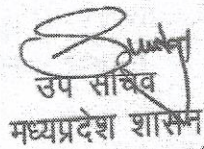 उप सचिव
मध्यप्रदेश शासन